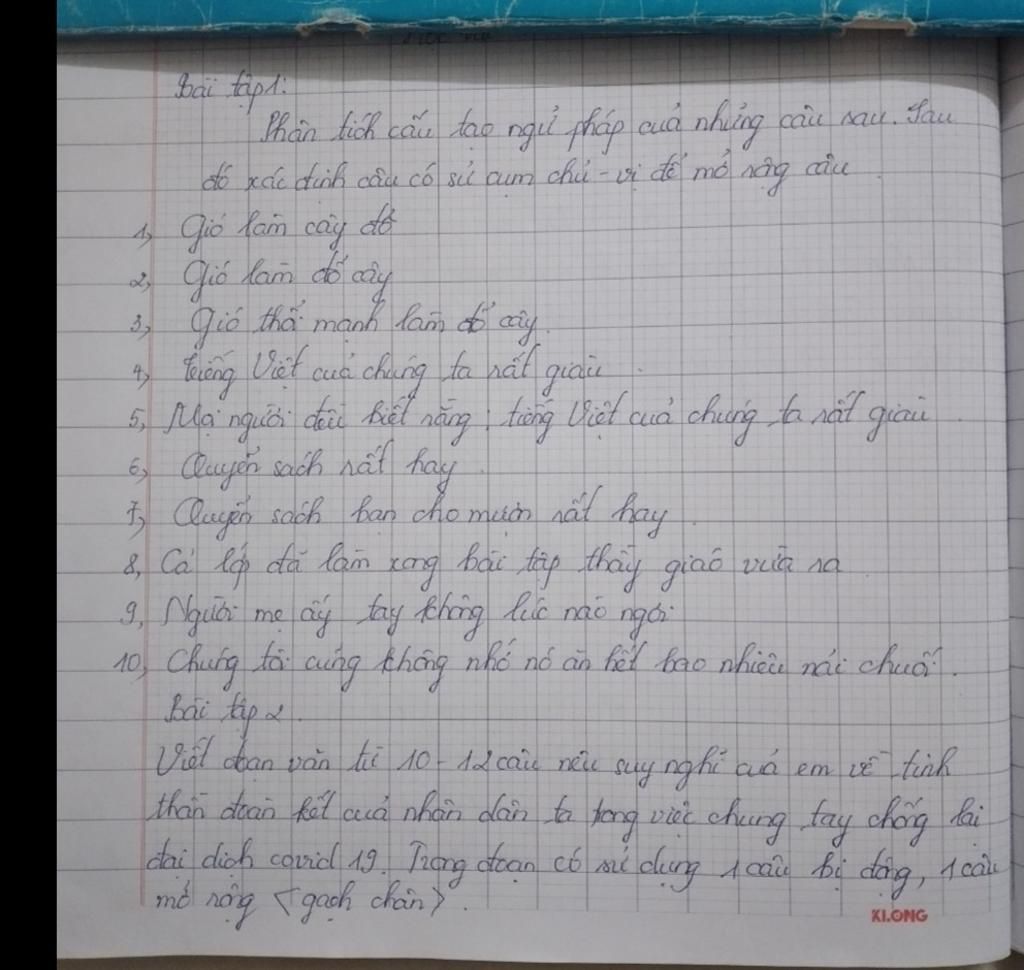 Bài tập 1:
Phân tích cấu tạo ngữ pháp của những câu sau. Sau
đó xác định câu có sử cụm chủ - vị để mở rộng câu
1, Gió làm cây đổ
2, Gió làm đổ cây
3, Gió thổi mạnh làm đổ cây.
4, tiếng Việt của chúng ta rất giàu.
5, Mọi người đều biết rằng: tiếng Việt của chúng ta rất giàu
6, Quyển sách rất hay.
7, Quyển sách bạn cho mượn rất hay.
8, Cả lớp đã làm xong bài tập thầy giáo vừa ra
9, Người mẹ ấy tay không lúc nào ngơi
10, Chúng tôi cũng không nhớ nó ăn hết bao nhiêu nải chuối.
Bài tập 2.
Viết đoạn văn từ 10 - 12 câu nêu suy nghĩ của em về tinh
thần đoàn kết của nhân dân ta trong việc chung tay chống lại
đại dịch covid 19. Trong đoạn có sử dụng 1 câu bị động, 1 câu
mở rộng <gạch chân>.
KLONG